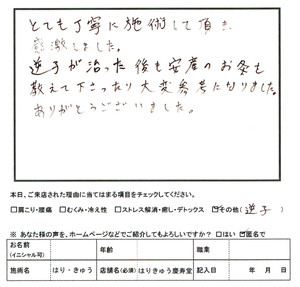 とても丁寧に施術して頂き
感激しました。
逆子が治った後も安産のお灸も
教えて下さったり大変参考になりました。
ありがとうございました。
本日、ご来店された理由に当てはまる項目をチェックしてください。
□肩こり・腰痛 □むくみ・冷え性 □ストレス解消・癒し・デトックス ☑その他（逆子）
※ あなた様の声を、ホームページなどでご紹介してもよろしいですか？ □はい ☑匿名で
お名前 (イニシャル可) 年齢 職業
施術名 はり・きゅう 店舗名(必須) はりきゅう慶寿堂 記入日 年 月 日